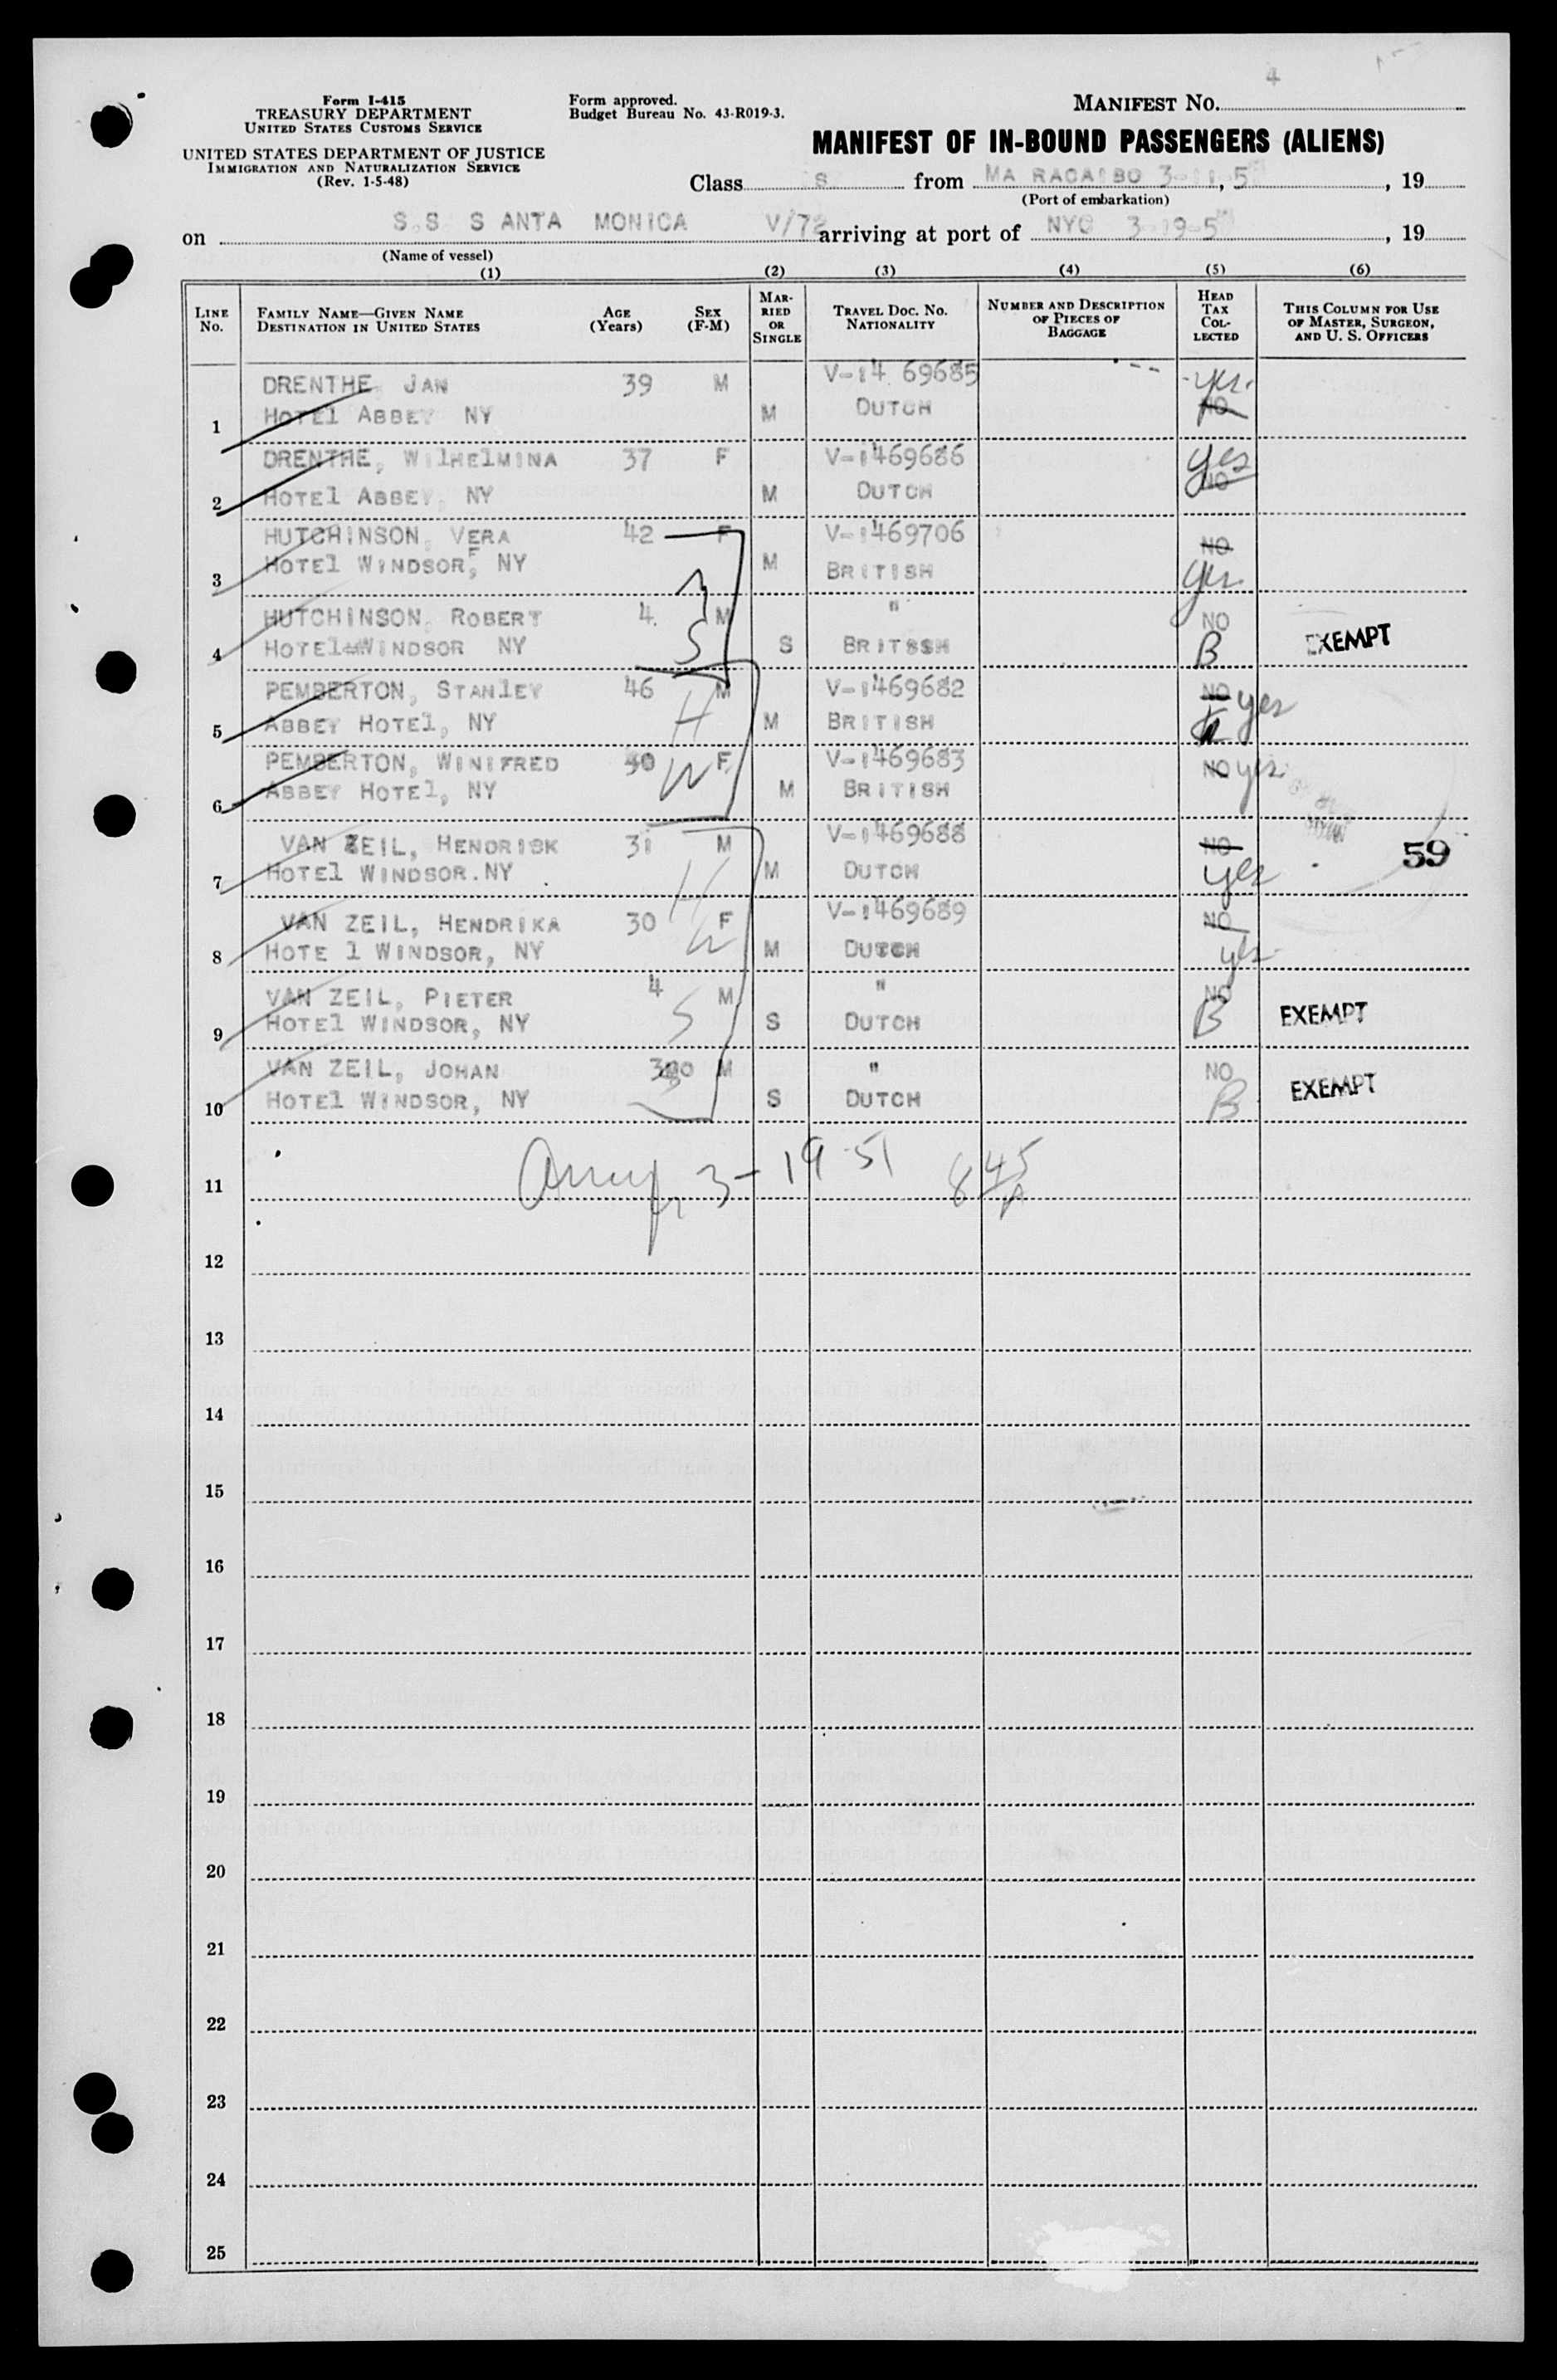 4
Form I-415
TREASURY DEPARTMENT
UNITED STATES CUSTOMS SERVICE
UNITED STATES DEPARTMENT OF JUSTICE
IMMIGRATION AND NATURALIZATION SERVICE
(Rev. 1-5-48)
Form approved.
Budget Bureau No. 43-R019-3.
MANIFEST NO.
MANIFEST OF IN-BOUND PASSENGERS (ALIENS)
Class S from MA RACAIBO 3-11-5 , 19
(Port of embarkation)
on S.S S ANTA MONICA V/72 arriving at port of NYC 3-19-5 , 19
(Name of vessel)
(1) (2) (3) (4) (5) (6)
LINE No. FAMILY NAME—GIVEN NAME DESTINATION IN UNITED STATES AGE (Years) SEX (F-M) MARRIED OR SINGLE TRAVEL DOC. NO. NATIONALITY NUMBER AND DESCRIPTION OF PIECES OF BAGGAGE HEAD TAX COLLECTED THIS COLUMN FOR USE OF MASTER, SURGEON, AND U. S. OFFICERS
DRENTHE, JAN 39 M V-14 69685 yes.
1 HOTEl ABBEY NY M DUTCH NO
DRENTHE, WIlHElMINA 37 F V-1469686 yes
2 HOTEl ABBEY, NY M DUTCH NO
HUTCHINSON, VERA F 42 F V-1469706 NO
3 HOTEl WINDSOR, NY M BRITISH yes
HUTCHINSON, ROBERT 4. M " NO
4 HOTEl WINDSOR NY S S BRITSSH B EXEMPT
PEMBERTON, STANlEY 46 M V-1469682 NO yes
5 ABBEY HOTEl, NY H M BRITISH
PEMBERTON, WINIFRED 30 W F V-1469683 NO yes
6 ABBEY HOTEl, NY M BRITISH
VAN ZEIL, HENDRISK 31 M V-1469688 NO
7 HOTEl WINDSOR.NY H M DUTCH yes 59
VAN ZEIL, HENDRIKA 30 F V-1469689 NO
8 HOTE l WINDSOR, NY W M DUTCH yes
VAN ZEIL, PIETER 4 M " NO
9 HOTEl WINDSOR, NY S S DUTCH B EXEMPT
VAN ZEIL, JOHAN M " NO
10 HOTEl WINDSOR, NY S DUTCH B EXEMPT
11 3-19-51 845 A
12
13
14
15
16
17
18
19
20
21
22
23
24
25